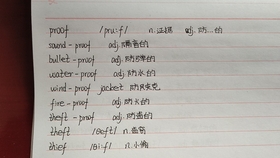 proof /pru:f/ n.证据 adj.防…的
sound-proof adj.隔音的
bullet-proof adj.防弹的
water-proof adj.防水的
wind-proof jacket 防风夹克
fire-proof adj.防火的
theft-proof adj.防盗的
theft /θeft/ n.盗窃
thief /θi:f/ n.小偷